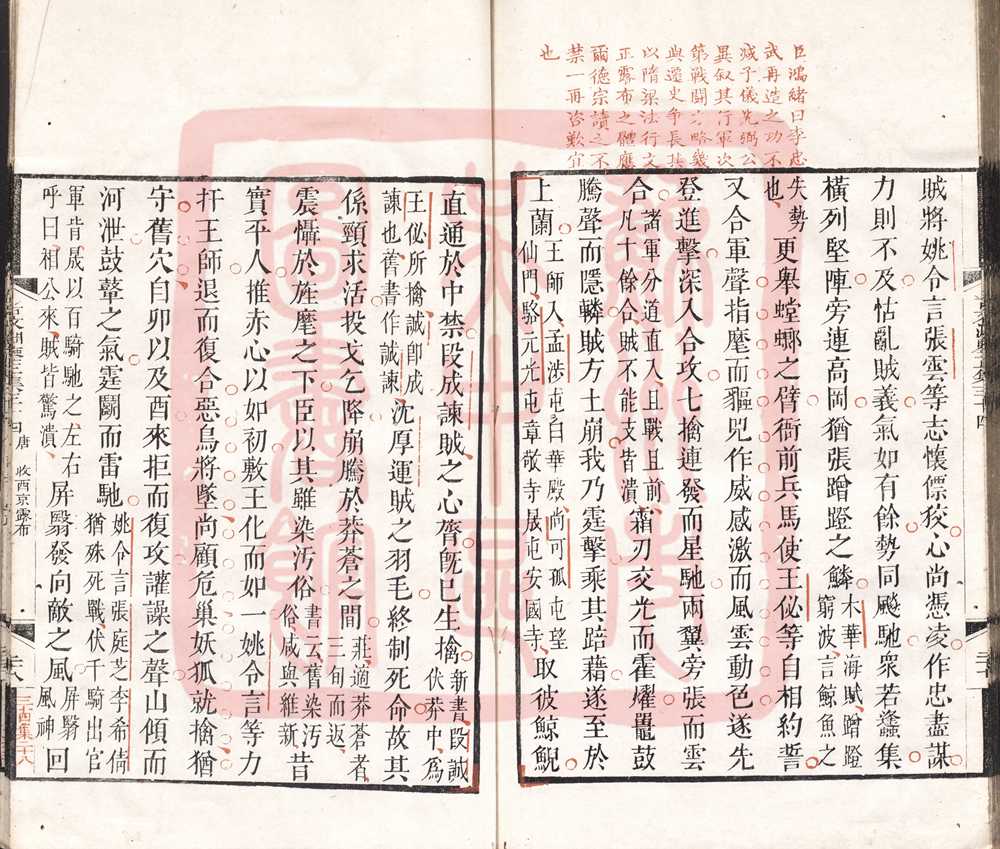 臣鴻緒曰李忠
武再造之功不
減子儀光弼公
異叙其行軍次
第戰鬪方略幾
與遷史爭長其
以隋梁法行文
正露布之體應
爾德宗讀之不
禁一再咨歎宜
也
賊將姚令言張雲等志懷僄狡心尚憑凌作忠盡謀
力則不及怙亂賊義氣如有餘勢同飈馳衆若蠭集
橫列堅陣旁連高岡猶張蹭蹬之鱗木華海賦蹭蹬窮波言鯨魚之
失勢也更舉螳螂之臂衙前兵馬使王佖等自相約誓
又合軍聲指麾而貙兕作威感激而風雲動色遂先
登進擊深入合攻七擒連發而星馳兩翼旁張而雲
合諸軍分道直入且戰且前凡十餘合賊不能支皆潰霜刃交光而霍燿鼉鼓
騰聲而隱轔賊方土崩我乃霆擊乘其踣藉遂至於
上蘭王師入孟涉屯白華殿尚可孤屯望仙門駱元光屯章敬寺晟屯安國寺取彼鯨鯢
直通於中禁段成諫賊之心膂旣已生擒新書段誠伏莽中爲
王佖所擒誠卽成諫也舊書作誠諫沈厚運賊之羽毛終制死命故其
係頸求活投戈乞降崩騰於莽蒼之間莊適莽蒼者三旬而返
震懾於旌麾之下臣以其雖染汚俗書云舊染汚俗咸與維新昔
實平人推赤心以如初敷王化而如一姚令言等力
扞王師退而復合惡鳥將墜尚顧危巢妖狐就擒猶
守舊穴自卯以及酉來拒而復攻讙譟之聲山傾而
河泄鼓鼙之氣霆鬭而雷馳姚令言張庭芝李希倩猶殊死戰伏千騎出官
軍背晟以百騎馳之左右呼曰相公來賊皆驚潰屏翳發向敵之風屏翳風神回
唐 收西京露布
三十四集二十八